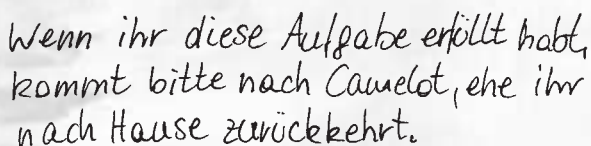 Wenn ihr diese Aufgabe erfüllt habt,
kommt bitte nach Camelot, ehe ihr
nach Hause zurückkehrt.